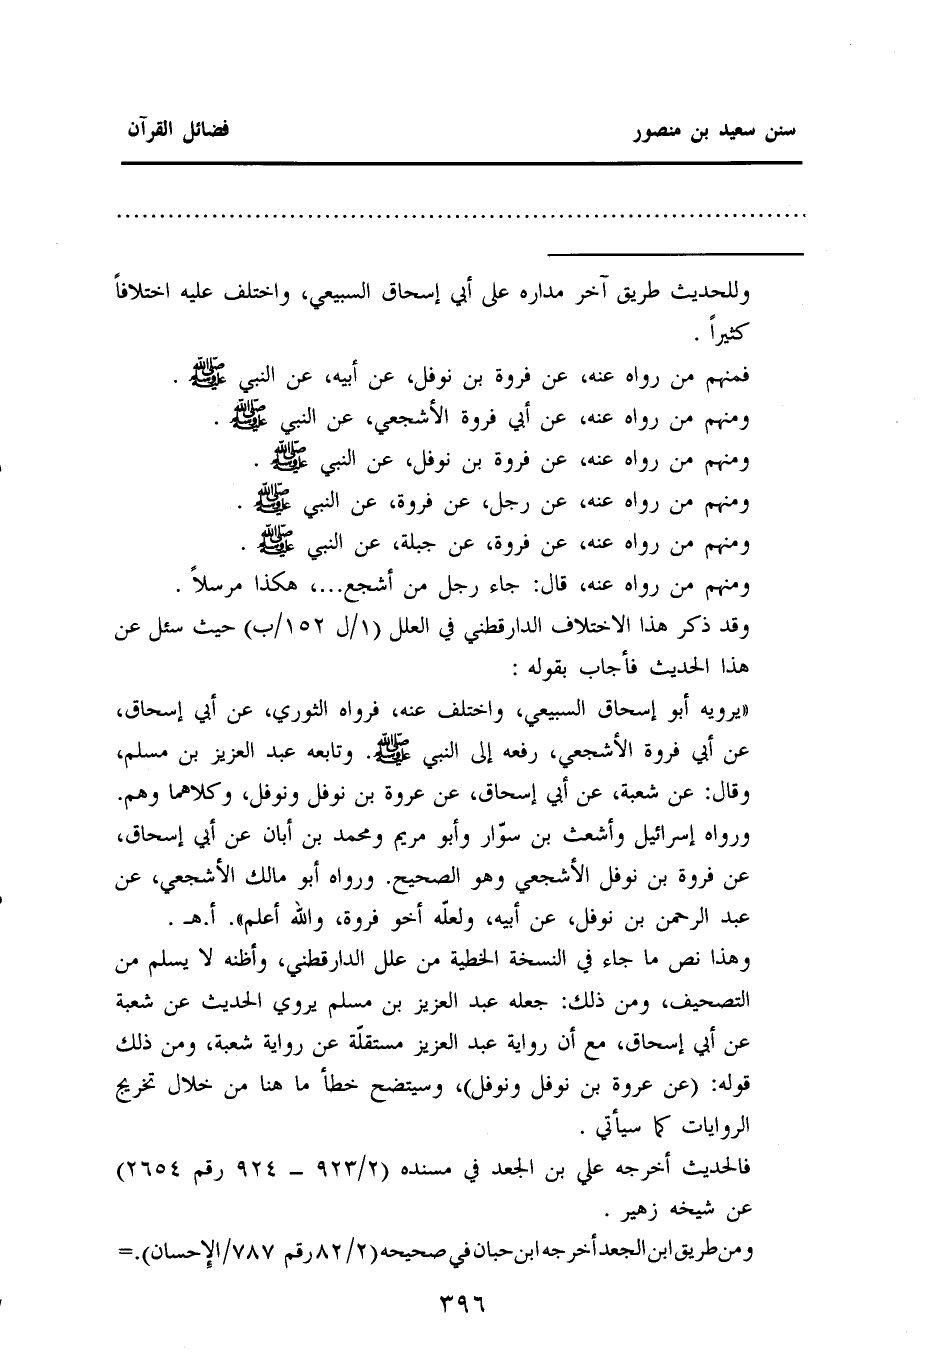 سنن سعيد بن منصور فضائل القرآن
وللحديث طريق آخر مداره على أبي إسحاق السبيعي، واختلف عليه اختلافاً
كثيراً .
فمنهم من رواه عنه، عن فروة بن نوفل، عن أبيه، عن النبي ﷺ .
ومنهم من رواه عنه، عن أبي فروة الأشجعي، عن النبي ﷺ .
ومنهم من رواه عنه، عن فروة بن نوفل، عن النبي ﷺ .
ومنهم من رواه عنه، عن رجل، عن فروة، عن النبي ﷺ .
ومنهم من رواه عنه، عن فروة، عن جبلة، عن النبي ﷺ .
ومنهم من رواه عنه، قال: جاء رجل من أشجع...، هكذا مرسلاً .
وقد ذكر هذا الاختلاف الدارقطني في العلل (١/ل ١٥٢/ب) حيث سئل عن
هذا الحديث فأجاب بقوله :
«يرويه أبو إسحاق السبيعي، واختلف عنه، فرواه الثوري، عن أبي إسحاق،
عن أبي فروة الأشجعي، رفعه إلى النبي ﷺ. وتابعه عبد العزيز بن مسلم،
وقال: عن شعبة، عن أبي إسحاق، عن عروة بن نوفل ونوفل، وكلاهما وهم.
ورواه إسرائيل وأشعث بن سوّار وأبو مريم ومحمد بن أبان عن أبي إسحاق،
عن فروة بن نوفل الأشجعي وهو الصحيح. ورواه أبو مالك الأشجعي، عن
عبد الرحمن بن نوفل، عن أبيه، ولعلّه أخو فروة، والله أعلم». أ.هـ .
وهذا نص ما جاء في النسخة الخطية من علل الدارقطني، وأظنه لا يسلم من
التصحيف، ومن ذلك: جعله عبد العزيز بن مسلم يروي الحديث عن شعبة
عن أبي إسحاق، مع أن رواية عبد العزيز مستقلّة عن رواية شعبة، ومن ذلك
قوله: (عن عروة بن نوفل ونوفل)، وسيتضح خطأ ما هنا من خلال تخريج
الروايات كما سيأتي .
فالحديث أخرجه علي بن الجعد في مسنده (٩٢٣/٢ ــ ٩٢٤ رقم ٢٦٥٤)
عن شيخه زهير .
ومن طريق ابن الجعد أخرجه ابن حبان في صحيحه (٨٢/٢ رقم ٧٨٧/الإحسان).=
٣٩٦